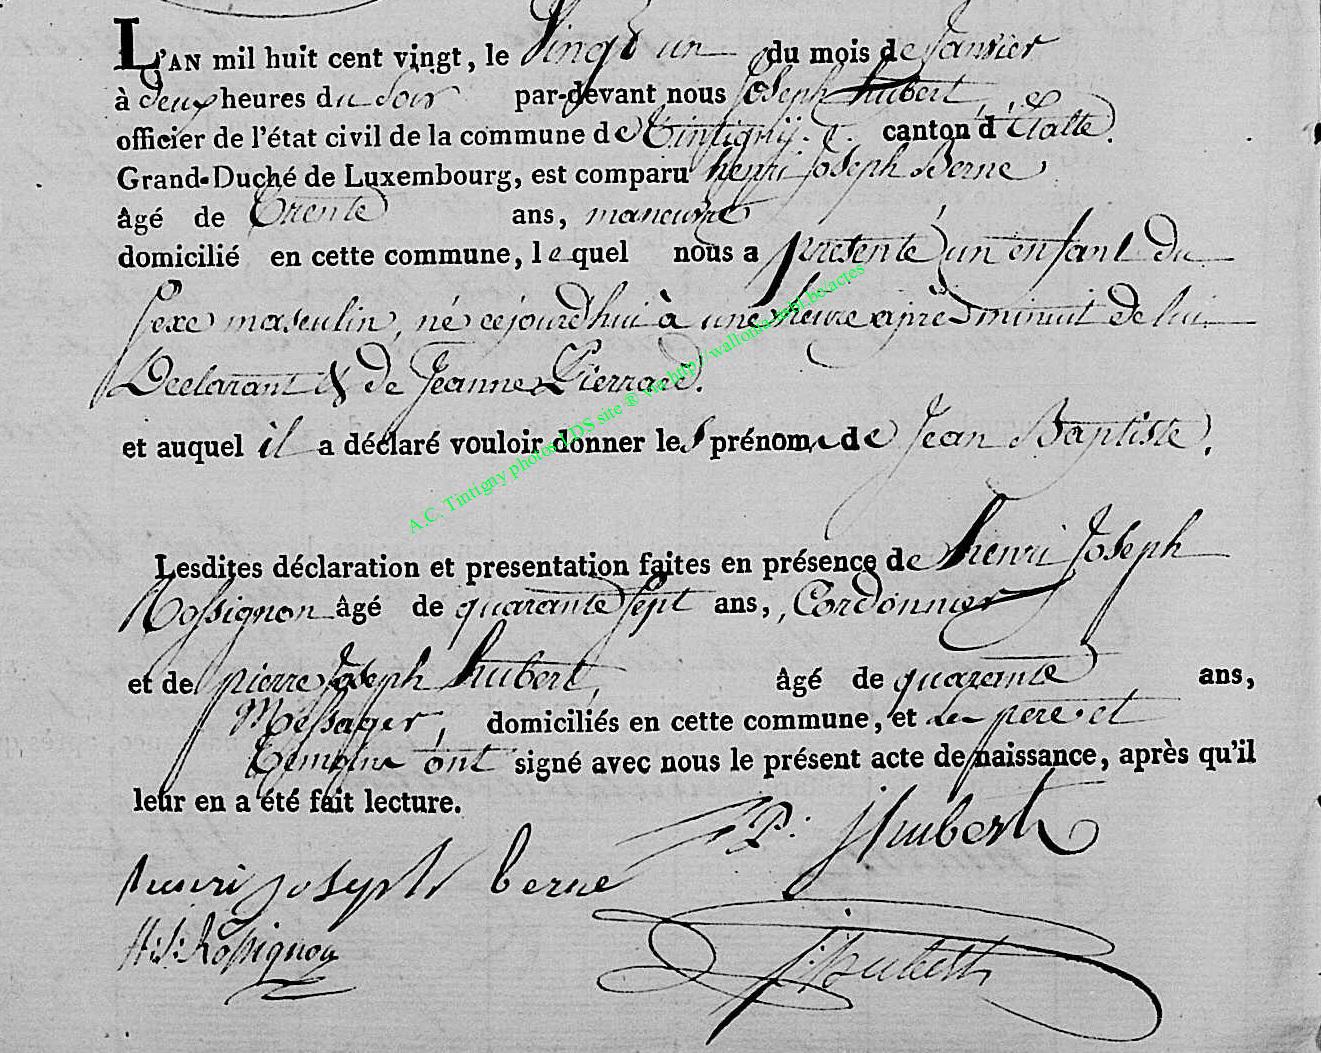 L'AN mil huit cent vingt, le Vingt un du mois de Janvier
à deux heures du soir par-devant nous Joseph hubert,
officier de l'état civil de la commune de Tintigny. canton d'Etalle.
Grand-Duché de Luxembourg, est comparu henri Joseph Berne
âgé de trente ans, maneuvre
domicilié en cette commune, lequel nous a presenté un enfant du
sexe masculin, né cejourd'hui à une heure après minuit de lui
Declarant & de Jeanne Pierrard.
et auquel il a déclaré vouloir donner les prénoms de Jean Baptiste.
Lesdites déclaration et presentation faites en présence de henri Joseph
Rossignon âgé de quarante sept ans, Cordonnier
et de pierre Joseph hubert, âgé de quarante ans,
Messager, domiciliés en cette commune, et les pere et
temoins ont signé avec nous le présent acte de naissance, après qu'il
leur en a été fait lecture.
P: J hubert
henri joseph berne
H: J: Rossignon
J: hubert
A.C. Tintigny photos LDS site ® via http://wallonia.mbl.be.actes